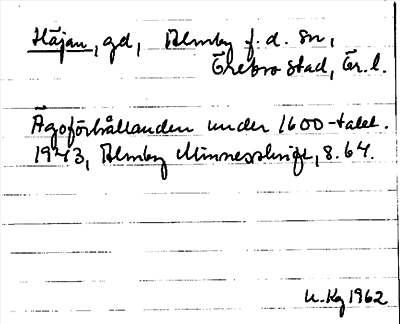 Håjan, gd, Almby f. d. sn,
Örebro stad, Ör. l.
Ägoförhållanden under 1600-talet.
1943, Almby Minnesskrift, s. 64.
U. Kg 1962